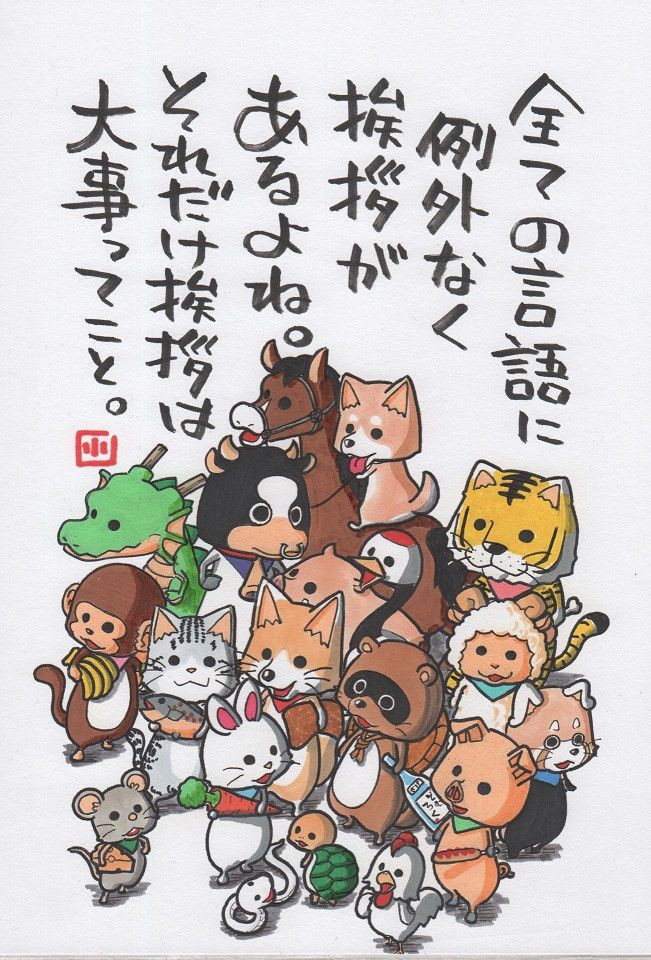 全ての言語に
例外なく
挨拶が
あるよね。
それだけ挨拶は
大事ってこと。